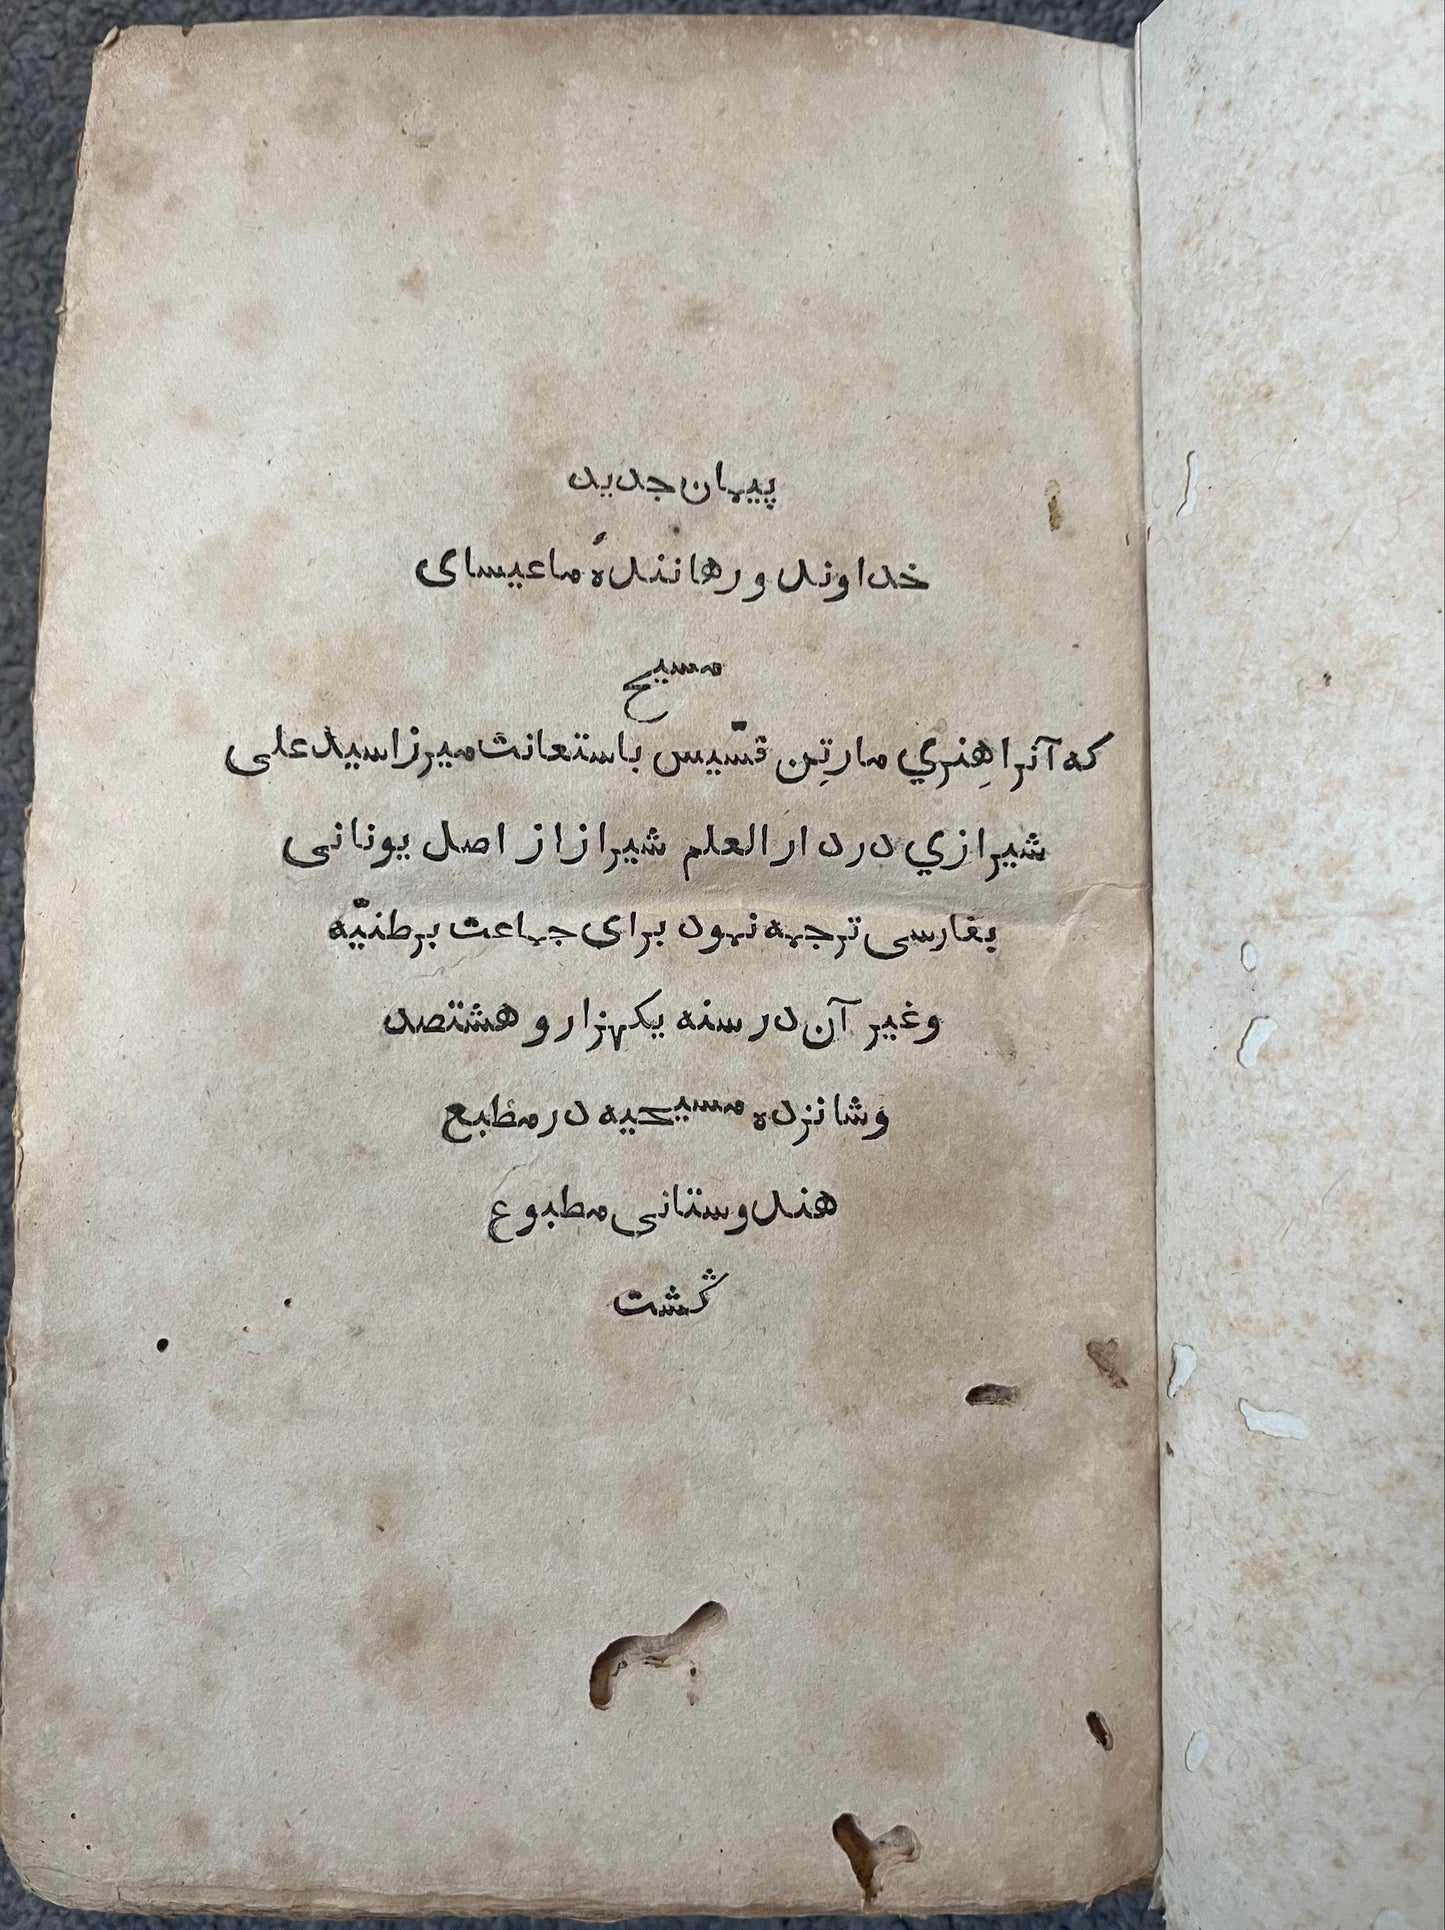 پیمان جدید
خداوند و رهانندهٔ ما عیسای
مسیح
که آنرا هِنري مارتِن قسّیس باستعانت میرزا سید علی
شیرازي در دار العلم شیراز از اصل یونانی
بفارسی ترجمه نمود برای جماعت برطنیّه
وغیر آن در سنه یکهزار و هشتصد
وشانزده مسیحیه در مطبع
هندوستانی مطبوع
ڭشت